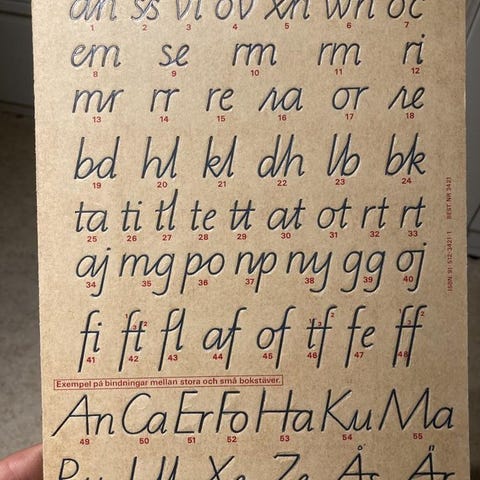 an ss vi ov xn wn oc
1 2 3 4 5 6 7
em se rm rm ri
8 9 10 11 12
mr rr re ra or re
13 14 15 16 17 18
bd hl kl dh lb bk
19 20 21 22 23 24
ta ti tl te tt at ot rt rt
25 26 27 28 29 30 31 32 33
aj mg po np ny gg oj
34 35 36 37 38 39 40
fi ft fl af of tf fe ff
41 42 43 44 45 46 47 48
Exempel på bindningar mellan stora och små bokstäver.
An Ca Er Fo Ha Ku Ma
49 50 51 52 53 54 55
Xe Ze Ås Är
ISBN: 91-512-3421-1 BEST.NR 3421